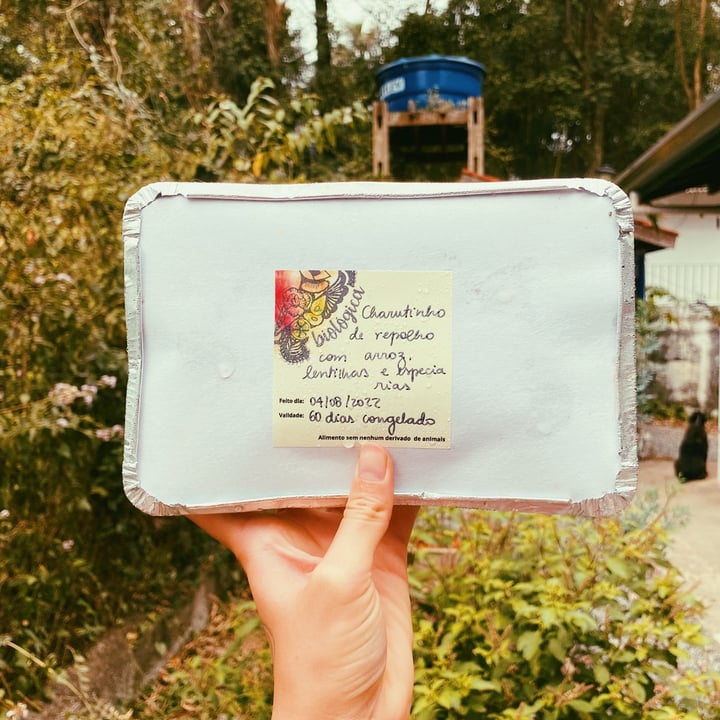 biológica
Charutinho
de repolho
com arroz,
lentilhas e especia
rias
Feito dia: 04/08/2022
Validade: 60 dias congelado
Alimento sem nenhum derivado de animais